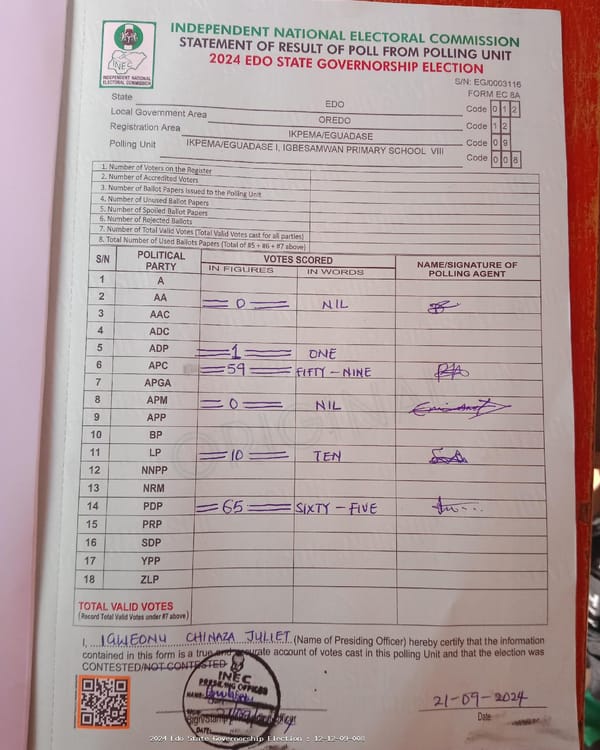 INDEPENDENT NATIONAL ELECTORAL COMMISSION
STATEMENT OF RESULT OF POLL FROM POLLING UNIT
2024 EDO STATE GOVERNORSHIP ELECTION
INEC
INDEPENDENT NATIONAL
ELECTORAL COMMISSION
S/N: EG/0003116
FORM EC 8A
State EDO Code 0 1 2
Local Government Area OREDO Code 1 2
Registration Area IKPEMA/EGUADASE Code 0 9
Polling Unit IKPEMA/EGUADASE I, IGBESAMWAN PRIMARY SCHOOL VIII Code 0 0 8
1. Number of Voters on the Register
2. Number of Accredited Voters
3. Number of Ballot Papers Issued to the Polling Unit
4. Number of Unused Ballot Papers
5. Number of Spoiled Ballot Papers
6. Number of Rejected Ballots
7. Number of Total Valid Votes (Total Valid Votes cast for all parties)
8. Total Number of Used Ballots Papers (Total of #5 + #6 + #7 above)
S/N POLITICAL PARTY VOTES SCORED NAME/SIGNATURE OF POLLING AGENT
IN FIGURES IN WORDS
1 A
2 AA 0 NIL
3 AAC
4 ADC
5 ADP 1 ONE
6 APC 59 FIFTY - NINE
7 APGA
8 APM 0 NIL
9 APP
10 BP
11 LP 10 TEN
12 NNPP
13 NRM
14 PDP 65 SIXTY - FIVE
15 PRP
16 SDP
17 YPP
18 ZLP
ORIGINAL
TOTAL VALID VOTES
(Record Total Valid Votes under #7 above)
I, IGWEONU CHINAZA JULIET (Name of Presiding Officer) hereby certify that the information
contained in this form is a true and accurate account of votes cast in this polling Unit and that the election was
CONTESTED/NOT CONTESTED
INEC
PRESIDING OFFICER
NAME:
SIGN:
DATE:
21-09-2024
Date
2024 Edo State Governorship Election : 12-12-09-008